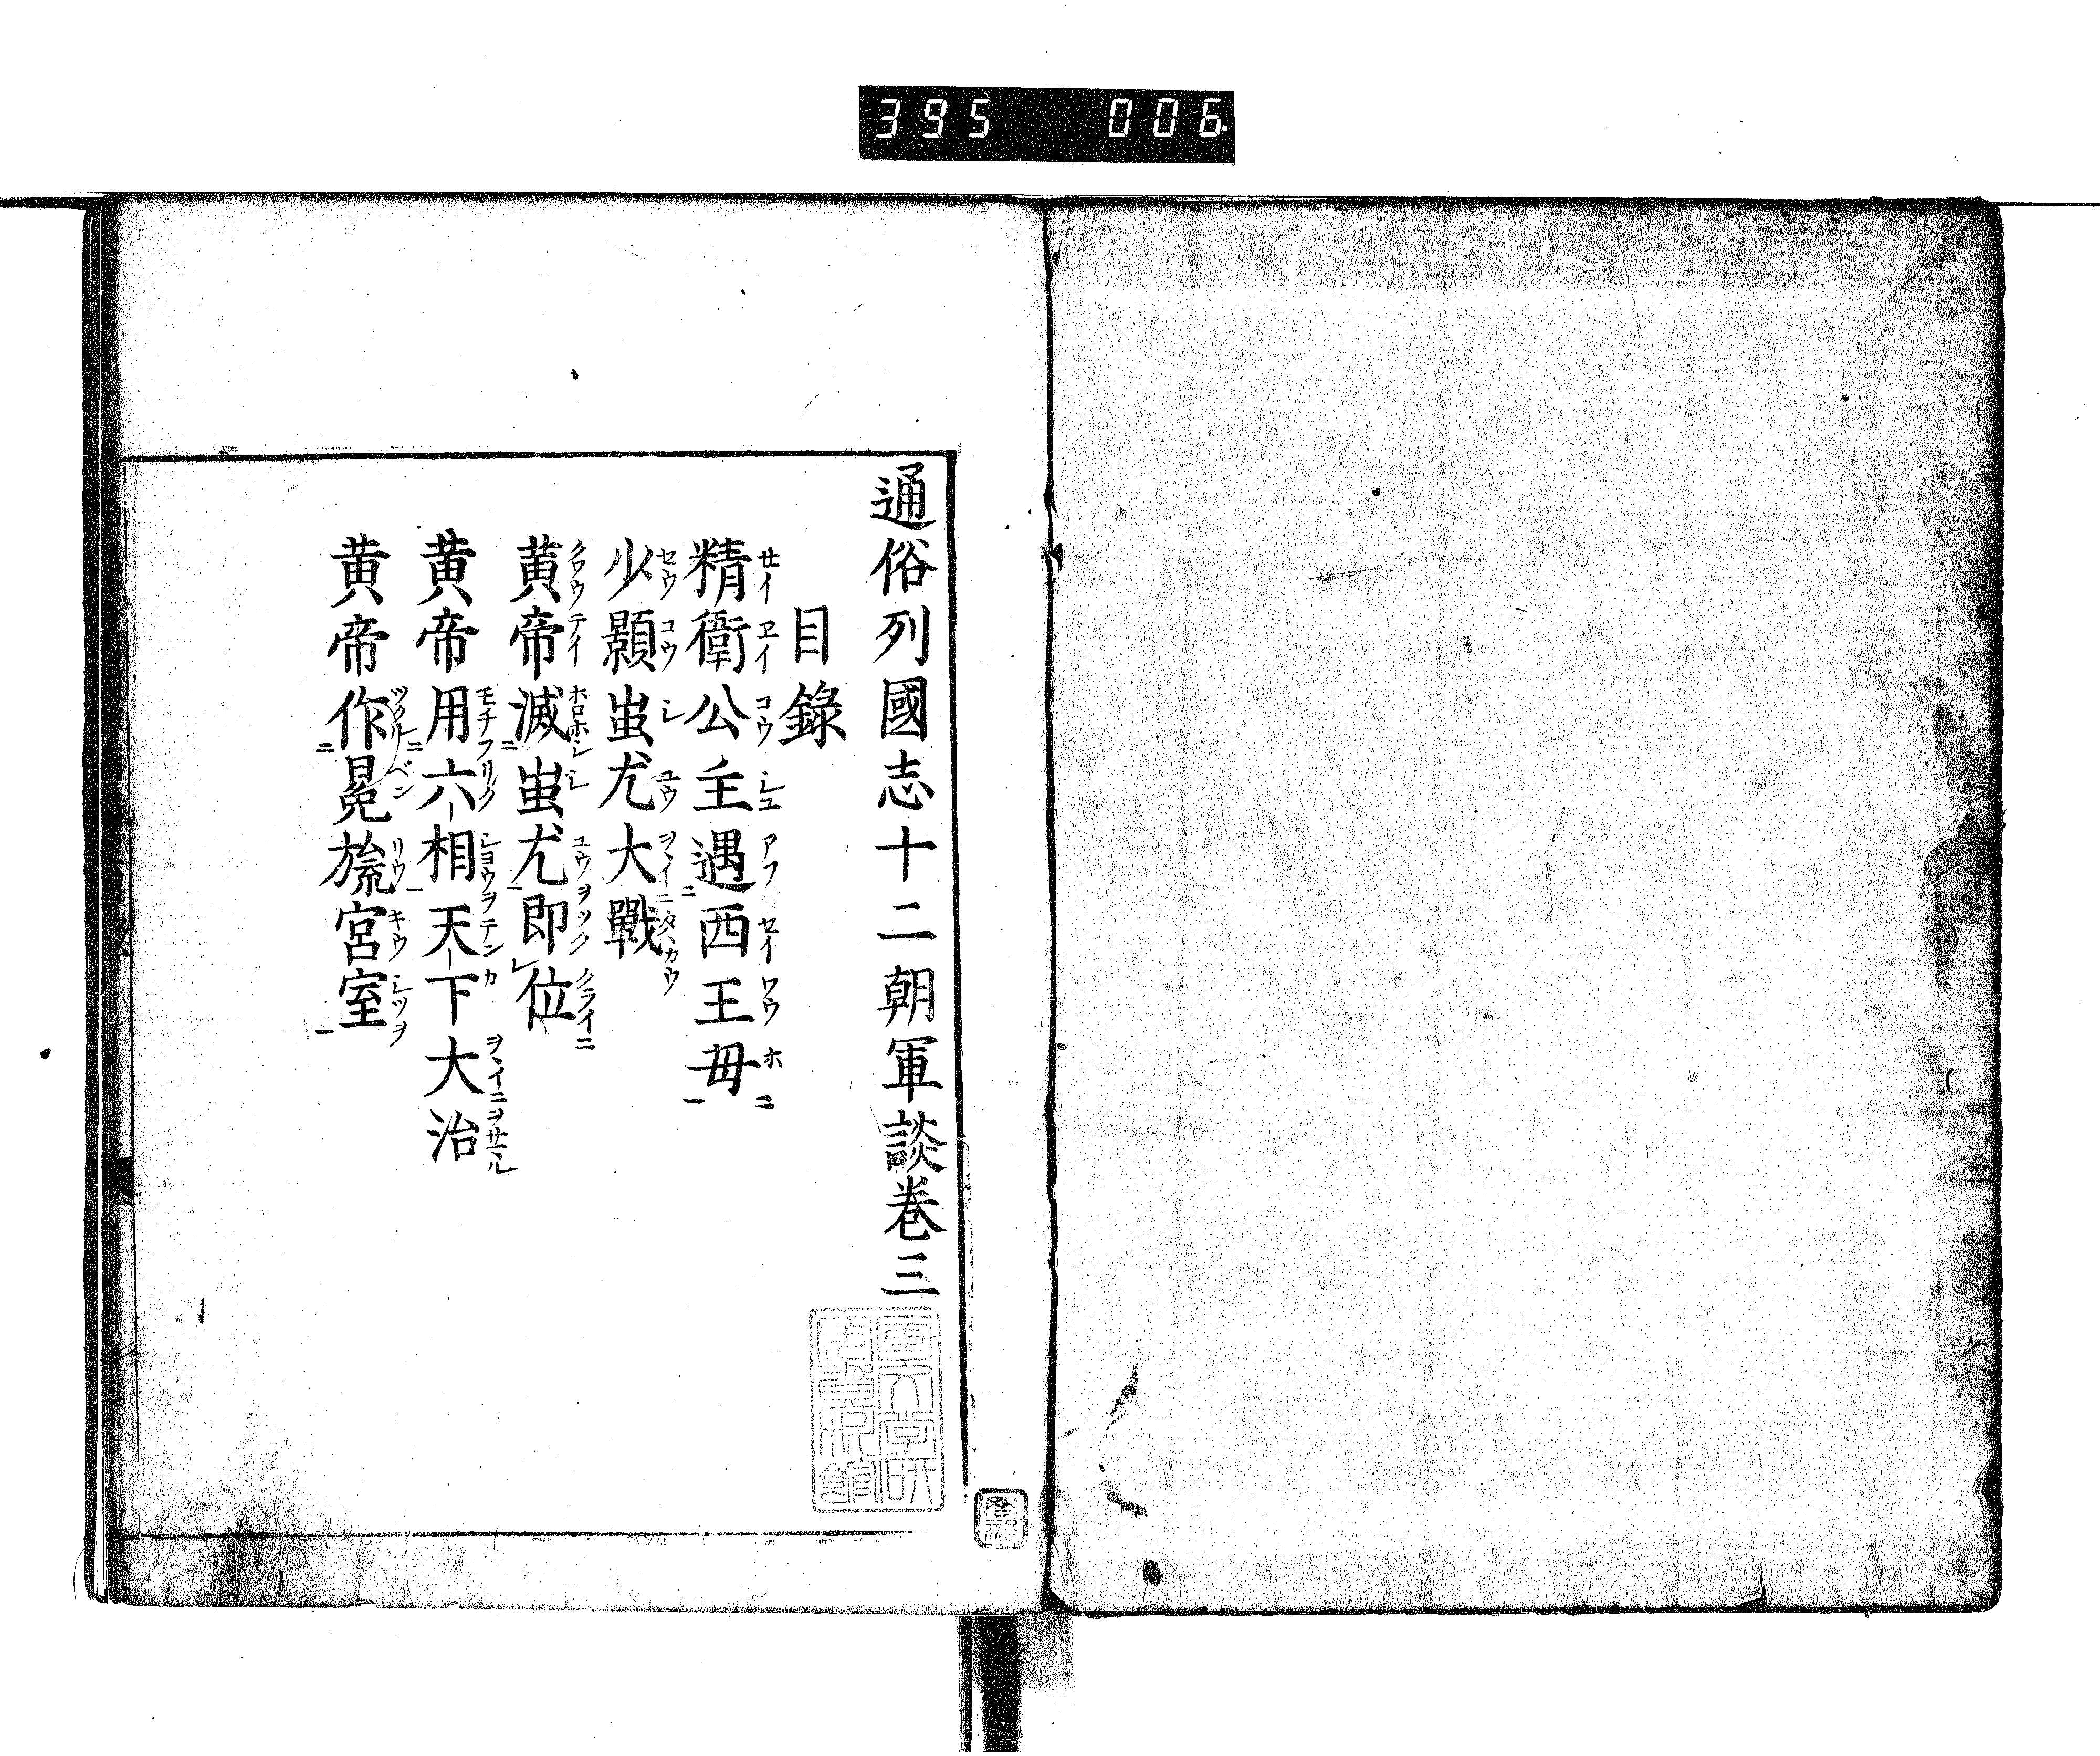 395 006
通俗列國志十二朝軍談卷三
目錄
精衛公主遇西王母
少顥蚩尤大戰
黃帝滅蚩尤即位
黃帝用六相天下大治
黃帝作冕旒宮室